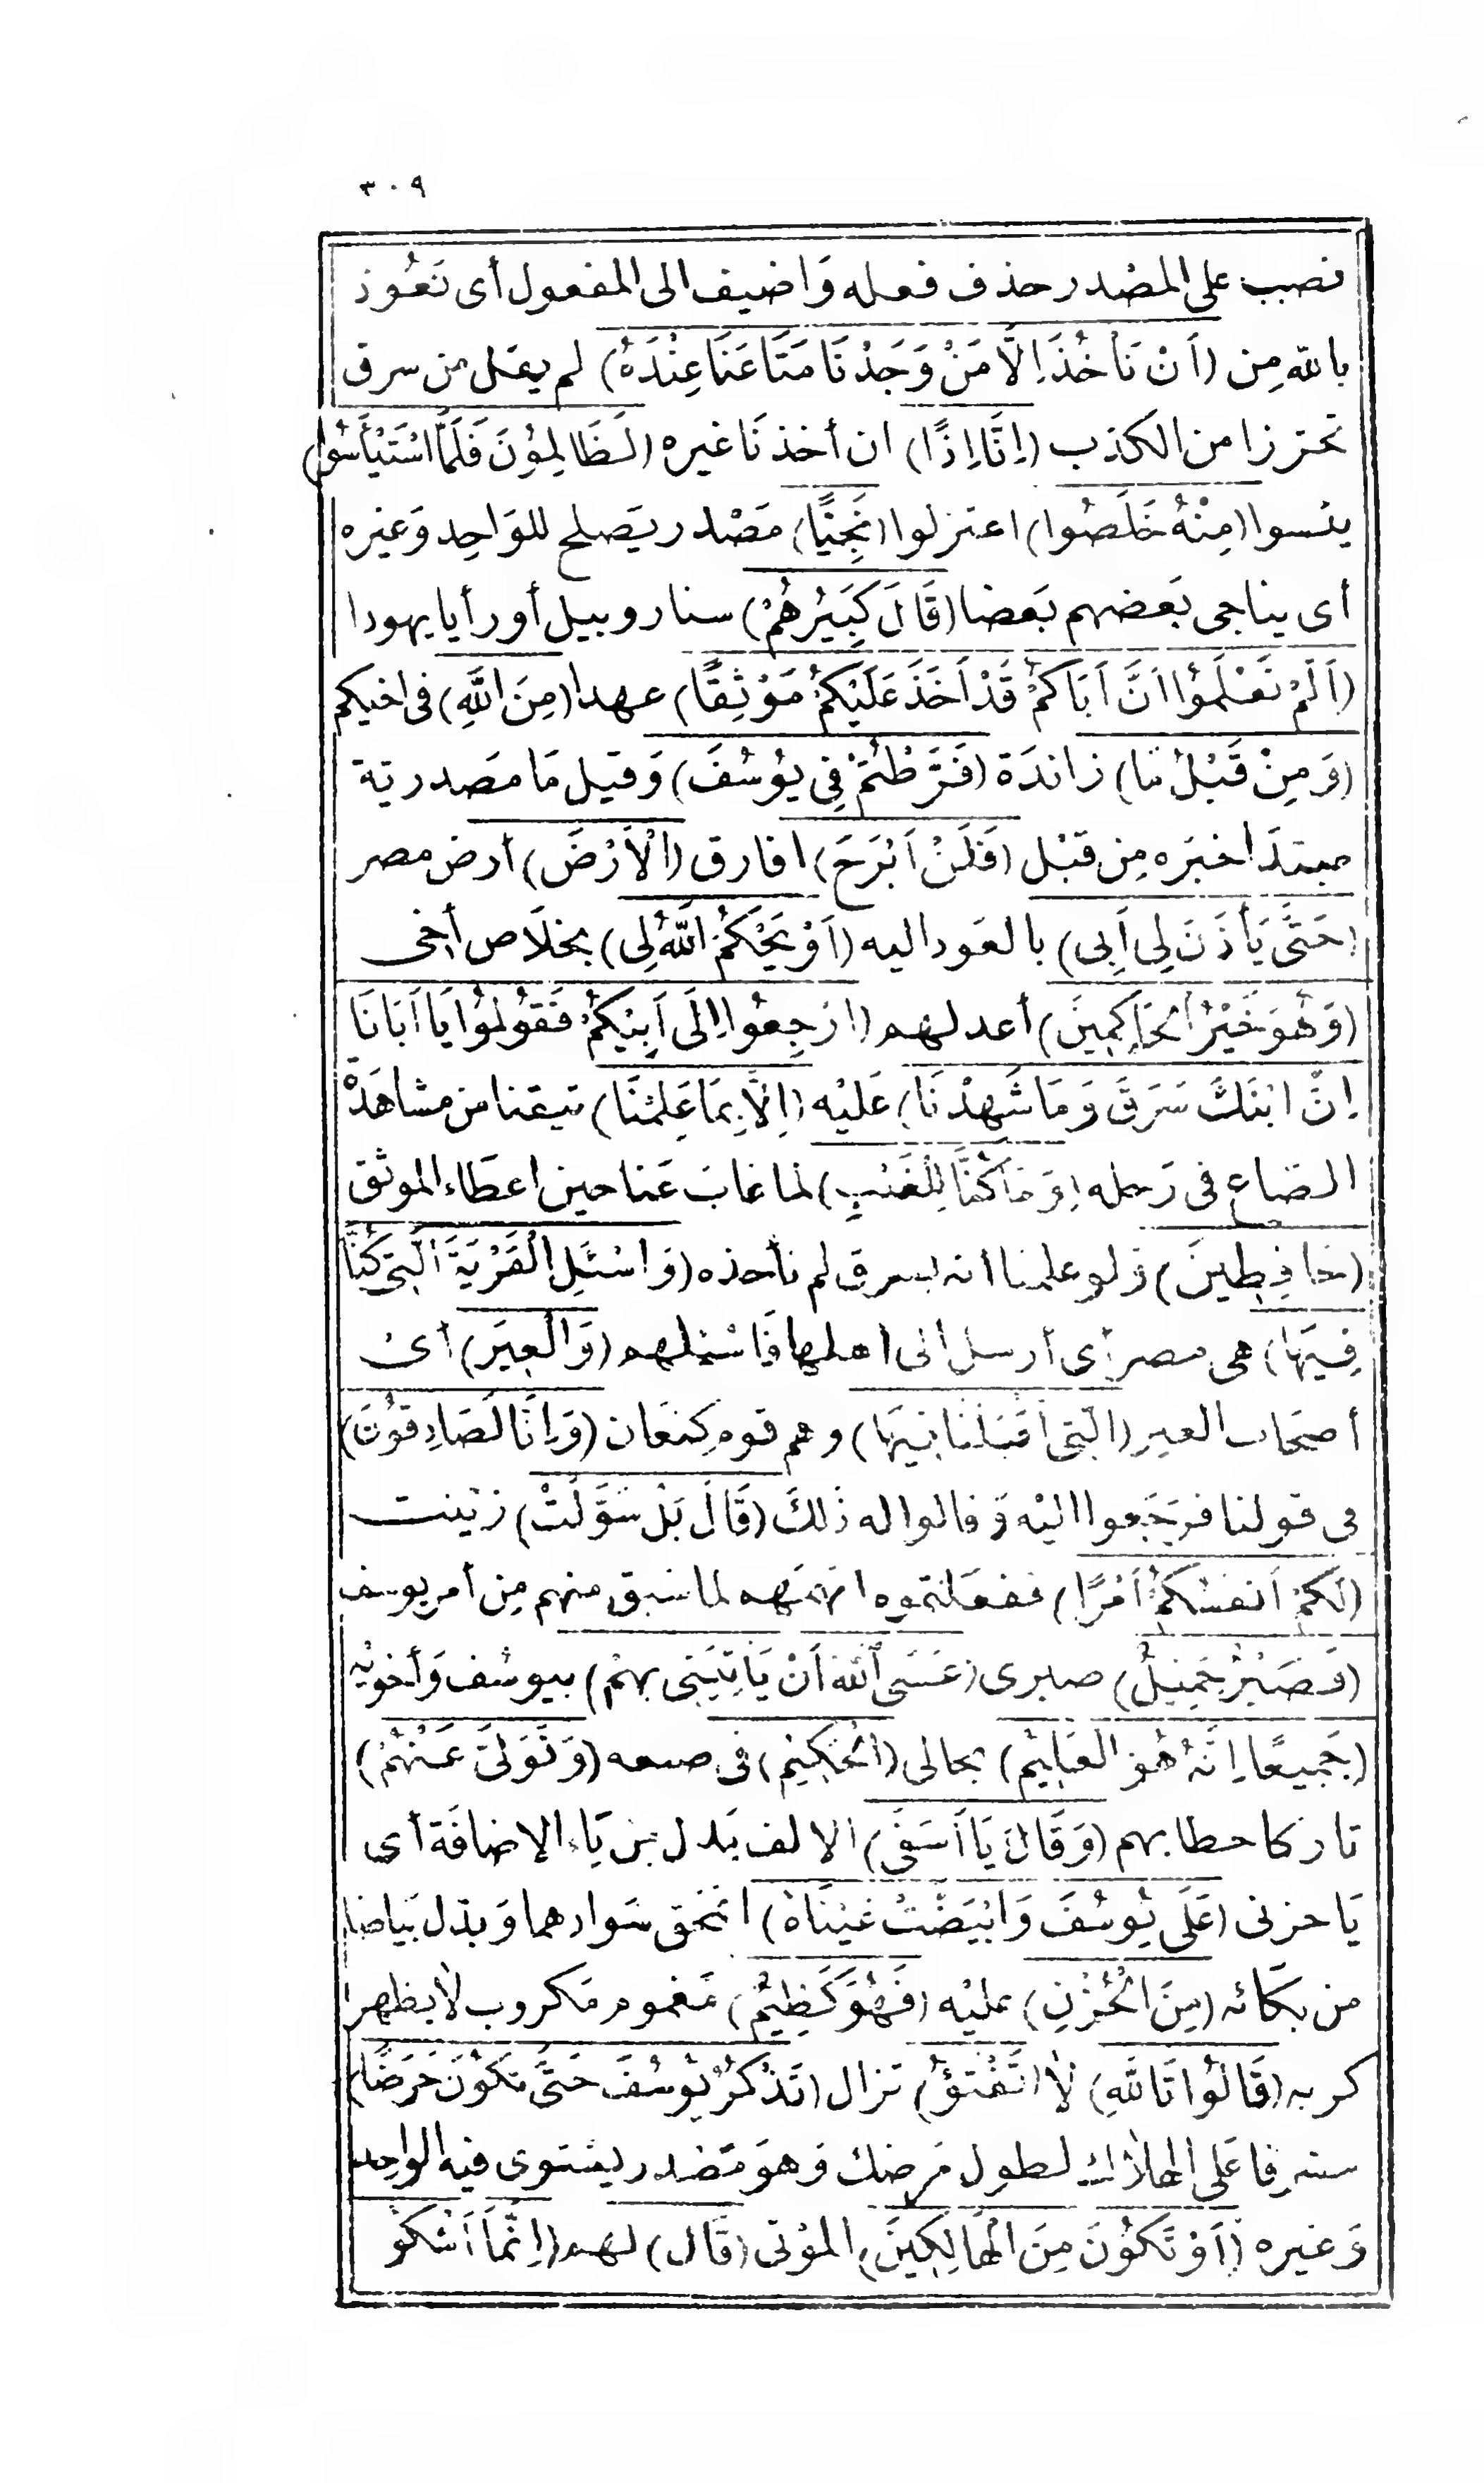 ٣٠٩
نصب على المصْدر حذف فعله وَاضيف الى المفعول أى نَعُوذ
بالله مِن (اَنْ نَأخُذَ اِلَّا مَنْ وَجَدْنَا مَتَاعَنَا عِنْدَهُ) لم يقل من سرق
تحترزا من الكذب (اِنَّا اِذًا) ان أخذنَا غيره (لَظَالِمُوْنَ فَلَمَّا اسْتَيْأَسُوا)
يئسوا (مِنْهُ خَلَصُوا) اعتزلوا (نَجِيًّا) مَصْدر يَصلح للوَاحِد وَغيره
أى يناجى بَعضهم بَعضا (قَالَ كَبِيْرُهُمْ) سنا روبيل أو رأيا يهودا
(اَلَمْ تَعْلَمُوْا اَنَّ اَبَاكُمْ قَدْ اَخَذَ عَلَيْكُمْ مَوْثِقًا) عهدا (مِنَ اللَّهِ) فى اخيكم
(وَمِنْ قَبْلُ مَا) زائدَة (فَرَّطْتُمْ فِي يُوسُفَ) وَقيل مَا مصَدرية
مبتدَأ خبرَه مِن قبْل (فَلَنْ اَبْرَحَ) افارق (الْاَرْضَ) أرض مصر
(حَتَّى يَأذَنَ لِى اَبِى) بالعَود اليه (اَوْ يَحْكُمَ اللَّهُ لِى) بخلَاص أخى
(وَهُوَ خَيْرُ الْحَاكِمِينَ) أعدلهم (ارْجِعُوا اِلَى اَبِيْكُمْ فَقُولُوْا يَا اَبَانَا
اِنَّ ابْنَكَ سَرَقَ وَمَا شَهِدْنَا) عَليْه (اِلَّا بِمَا عَلِمْنَا) تيقنا من مشاهَدَة
الصَاع فى رَحله (وَمَا كُنَّا لِلْغَيْبِ) لما غابَ عَنا حين اعطَاء الموثق
(حَافِظِينَ) وَلو علمنا أنه يسرق لم نأخذه (وَاسْئَلِ الْقَرْيَةَ الَّتِى كُنَّا
فِيْهَا) هى مصر أى أرسل الى اهلها فَاسْئلهم (وَالْعِيرَ) أىْ
أصحَاب العير (الَّتِى اَقْبَلْنَا فِيْهَا) وهم قوم كنعَان (وَاِنَّا لَصَادِقُوْنَ)
فى قولنا فرَجَعوا اليْه وَقالوا له ذَلكَ (قَالَ بَلْ سَوَّلَتْ) زَينت
(لَكُمْ اَنفسُكُمْ اَمْرًا) ففعَلتموه اتهمَهم لما سَبق منهم مِن أمر يوسف
(فَصَبْرٌ جَمِيْلٌ) صبرى (عَسَى اللَّهُ اَنْ يَأتِيَنِى بِهِمْ) بيوسُف وَأخويْه
(جَمِيعًا اِنَّهُ هُوَ الْعَلِيْم) بحالى (الْحَكِيْم) فى صنعه (وَتَوَلىَّ عَنْهُمْ)
تاركا خطابهم (وَقَالَ يَا اَسَفَى) الالف بَدل مِن يَاء الإضافَة أى
يَا حزنى (عَلَى يُوسُفَ وَابْيَضَّتْ عَيْنَاهُ) انمحَق سَوادهما وَبدّل بَياضا
من بكَائه (مِنَ الْحُزْنِ) عليْه (فَهُوَ كَظِيْمٌ) مَغموم مَكروب لَا يظهر
كربه (قَالُوْا تَاللَّهِ) لَا (تَفْتَؤُ) تزال (تَذْكُرُ يُوْسُفَ حَتَّى تَكُوْنَ حَرَضًا)
مشرفا عَلى الهلَاك لطول مَرضك وَهوَ مَصْدر يَسْتوى فيه الواحِد
وَغيره (اَوْ تَكُوْنَ مِنَ الْهَالِكِينَ) الموْتى (قَال) لهم (اِنَّمَا اَشْكُوْ